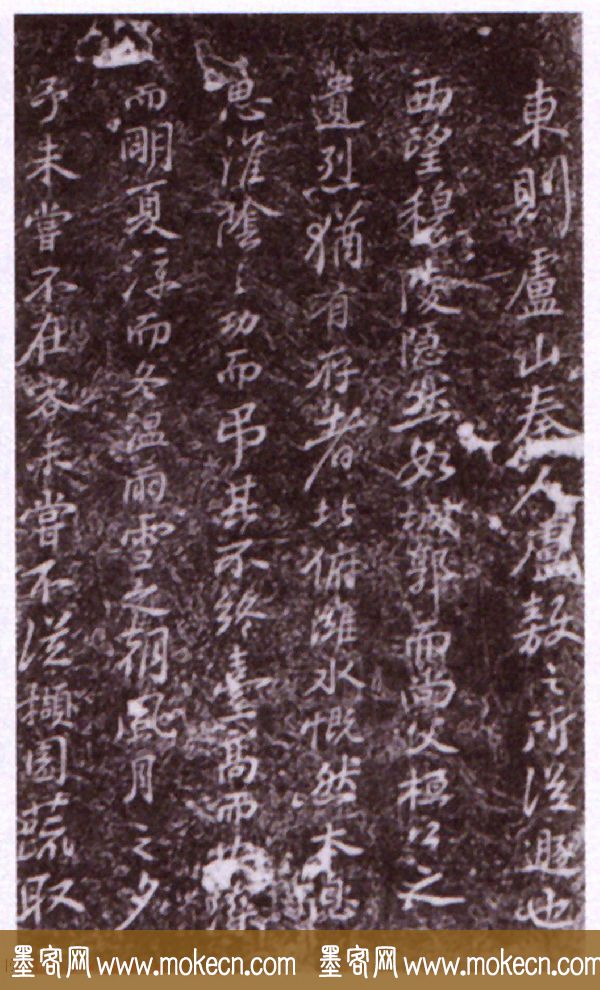 東則盧山秦人盧敖之所從遯也
西望穆陵隱然如城郭而尚父桓公之
遺烈猶有存者北俯濰水慨然太息
思淮陰之功而吊其不終臺高而安深
而明夏涼而冬温雨雪之朝風月之夕
予未嘗不在客未嘗不從擷園蔬取
墨客网 www.mokecn.com 墨客网 www.mokecn.com 墨客网 www.mokecn.com